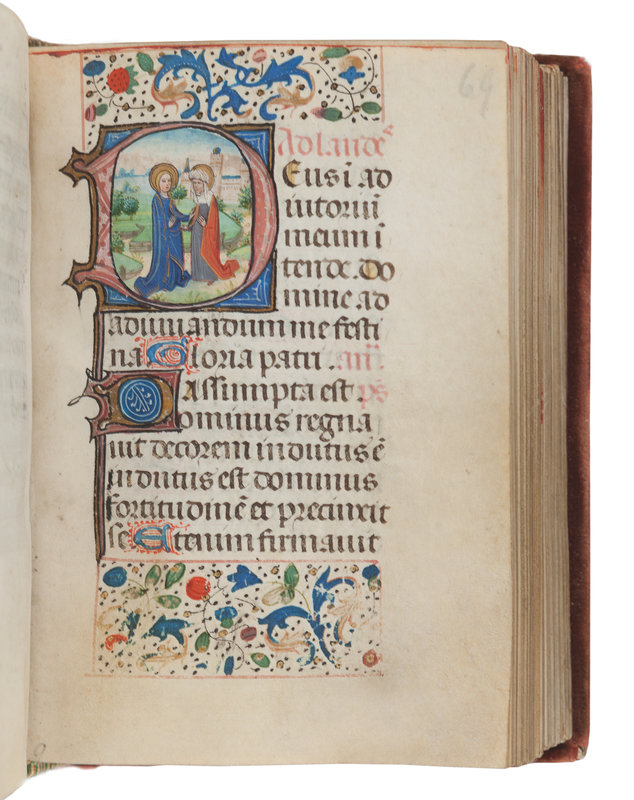 69
Ad laudes
Deus ī ad
iutoriū
meum ī
tende. Do
mine ad
adiuuandum me festi
na Gloria patri . an̄.
Assumpta est ps
Dominus regna
uit decorem indutus ē
indutus est dominus
fortitudinē et precinxit
se Etenim firmauit